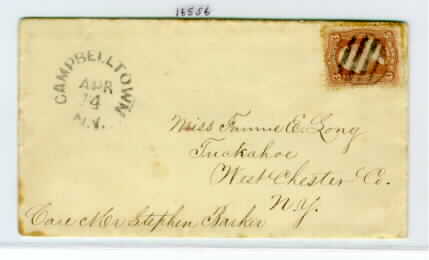 18556
CAMPBELLTOWN
APR
14
N.Y.
Miss Fannie E. Long
Tuckahoe
West Chester Co.
N.Y.
Care Mr Stephen Barker